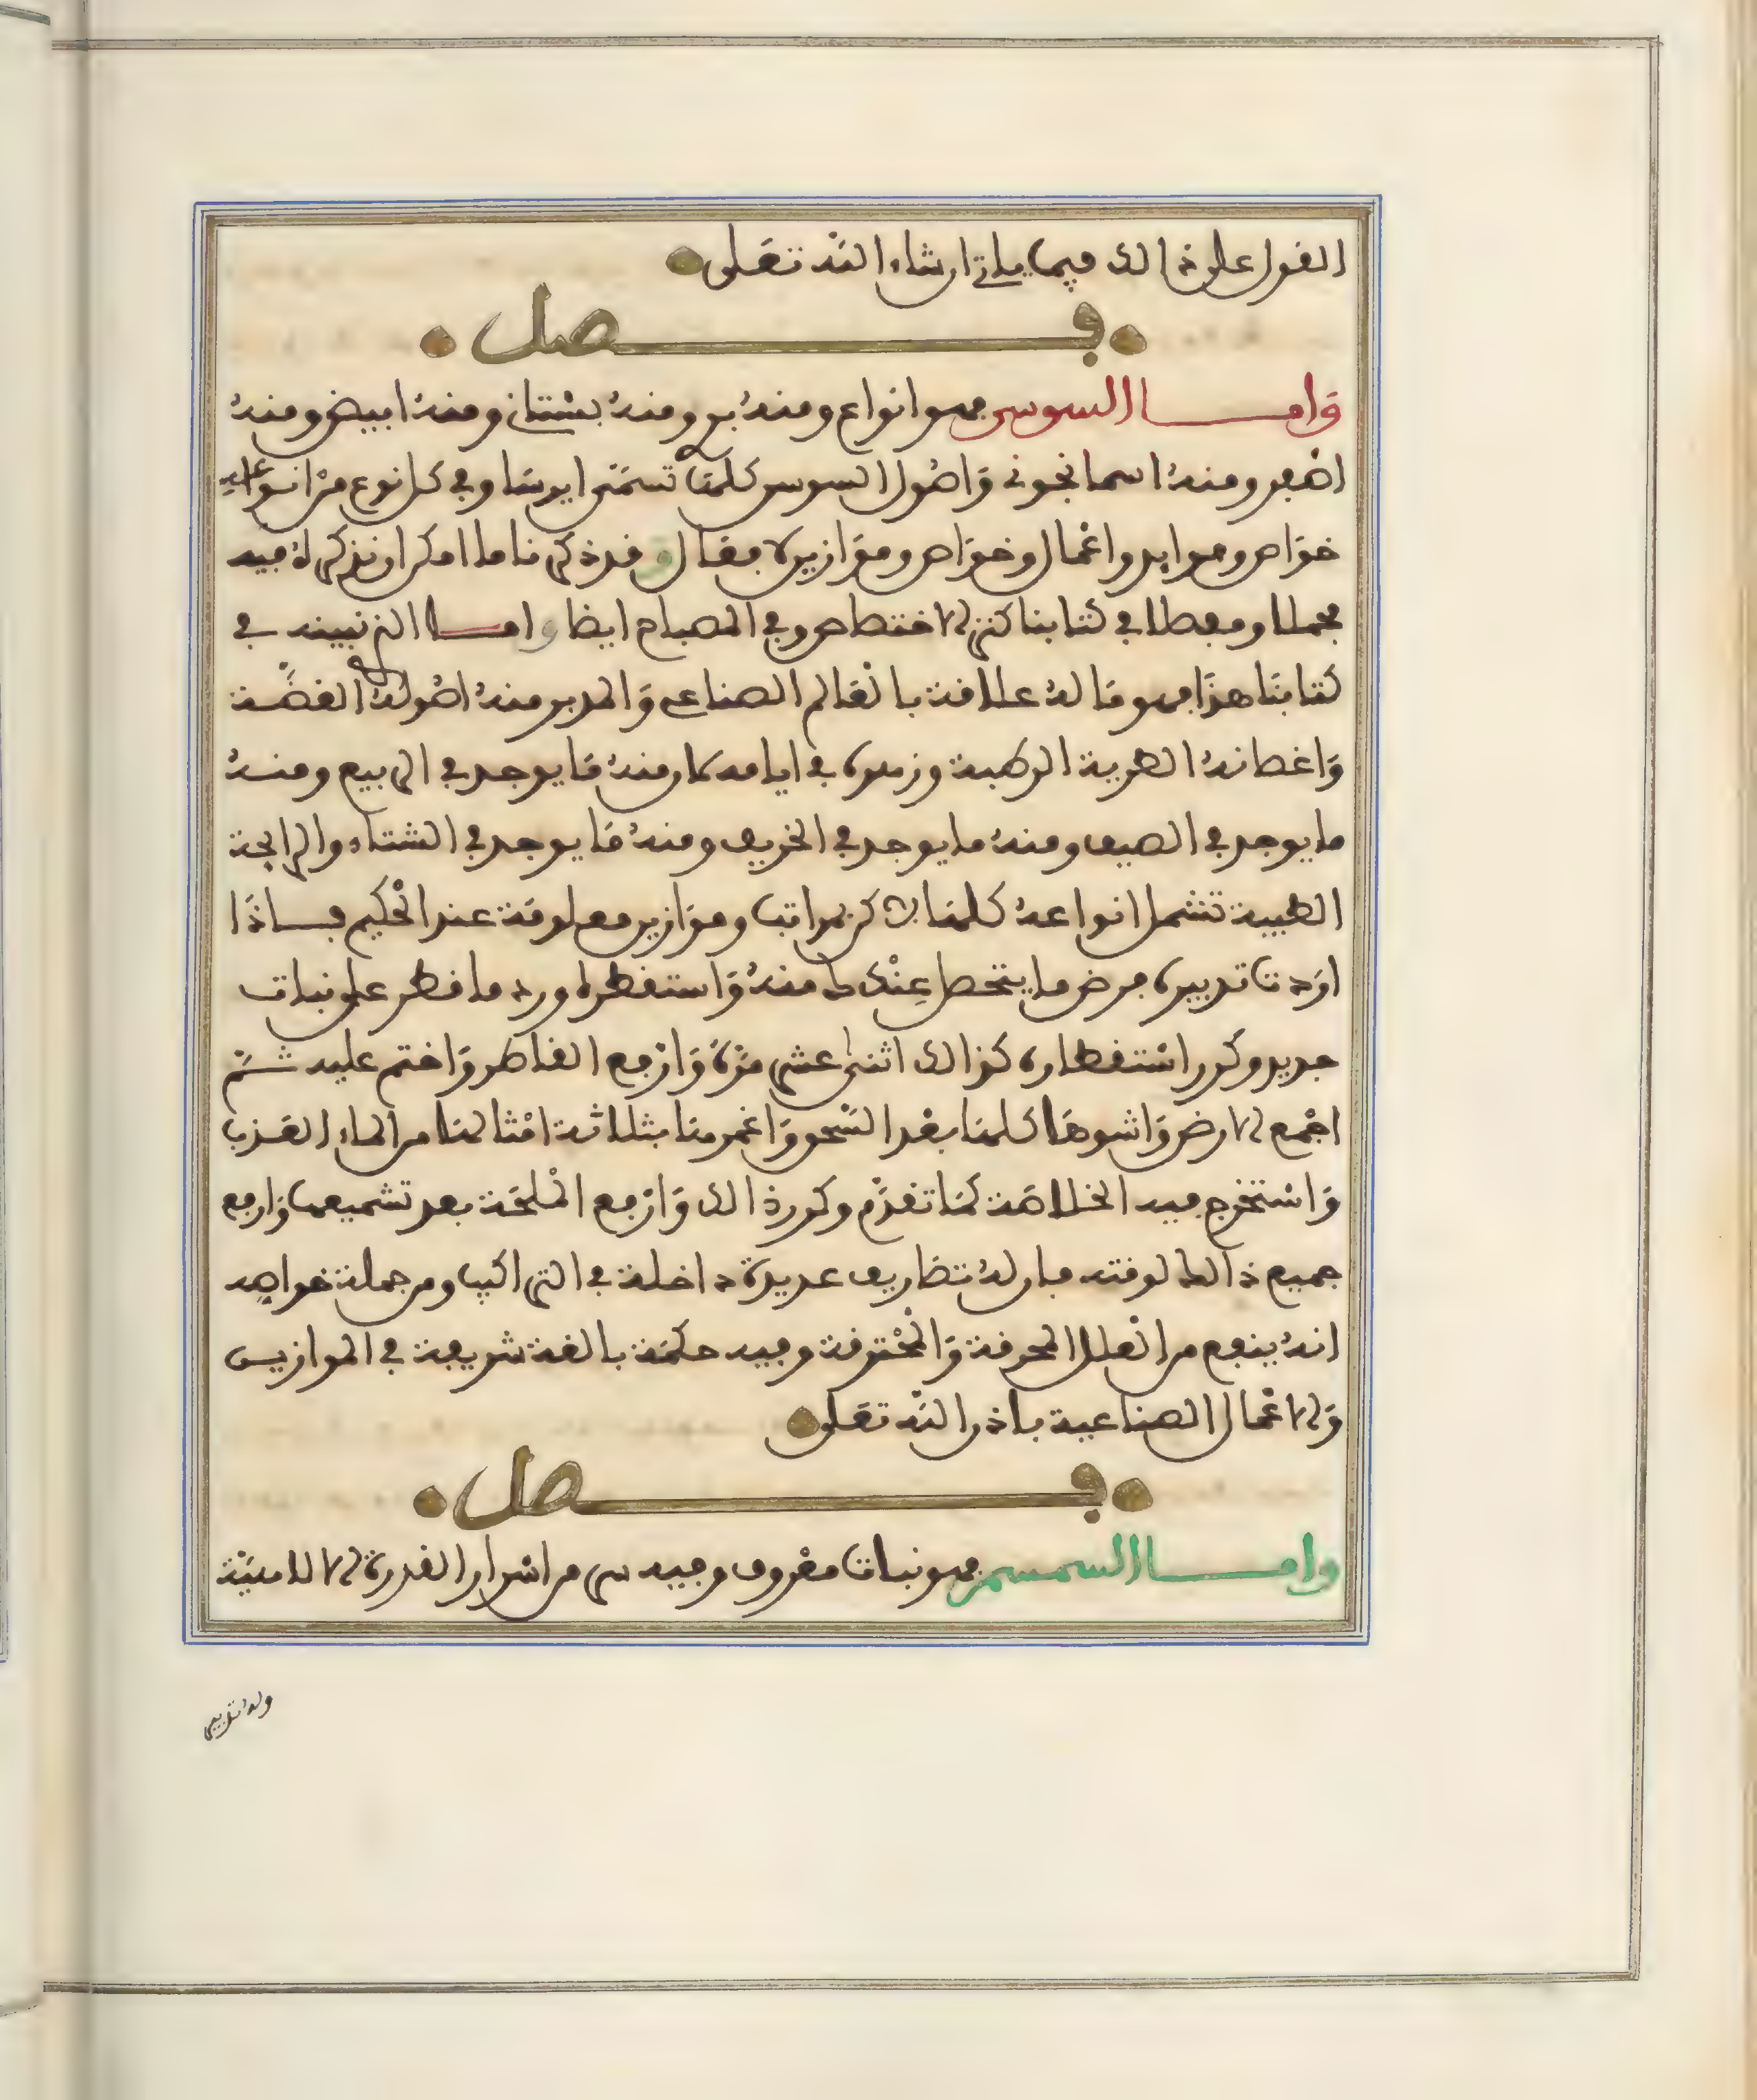 القول على ذالك فيما ياتي ان شاء الله تعلى
فصل
وَاما السوسن فهو انواع ومنهُ بري ومنهُ بستاني ومنهُ ابيض ومنهُ
اصفر ومنهُ اسمانجوني وَاصُول السوسن كلها تسَمّى ايرسَا وفي كل نوع منْ انواعه
خوَاص وفوايد واعْمال وخوَاص ومَوَازين لا يقال وقد ذكرنا ما امكن ان نذكر لهُ فيه
مجملا ومفصلا في كتابنا كنز الاختصاص وفي المصباح ايضا واما الذي نبينه في
كتابنَا هذَا فهو مَا لهُ علاقة بالعَالم الصناعي وَالمدبر منهُ اصُولهُ الغضَّة
وَاغصانهُ الطرية الرطبة وزهره في ايامه كان منهُ مَا يوجد في الربيع ومنهُ
ما يوجد في الصيف ومنهُ ما يوجد في الخريف ومنهُ مَا يوجد في الشتاء والرايحة
الطيبة تشمل انواعهُ كلهَا لاكن بمراتب وموَازين معلومَة عند الْحكيم فاذَا
ارَدت تدبيره فرض ما يتحصل عِنْدك منهُ وَاستقطره ورد ما قطر على نبات
جديد وكرر اسْتقطاره كذالك اثنى عشر مَرّة وَارْفع القاطر وَاختم عليه ثمّ
اجْمع الارض وَاشوهَا كلهَا بعْد السّحق وَاغمرها بثلاثة امْثالها من الماء العَذب
وَاسْتخرج فيه الخلاصَة كمَا تقدّم وكرر ذالك وَارْفع الْملحَة بعد تشميعها وَارفع
جميع ذالك لوقته فان لهُ تصاريف عديدة داخلة في التراكيب ومن جملة خواصه
انهُ ينفع من العلل المحرقة وَالْمحْترقة وفيه حكمَة بالغة شريفة في الموازين
وَالاعْمال الصناعية باذن الله تعَلى
فصل
واما السمسم فهو نبات معْروف وفيه سر من اسْرار القدرة الالاهيّة